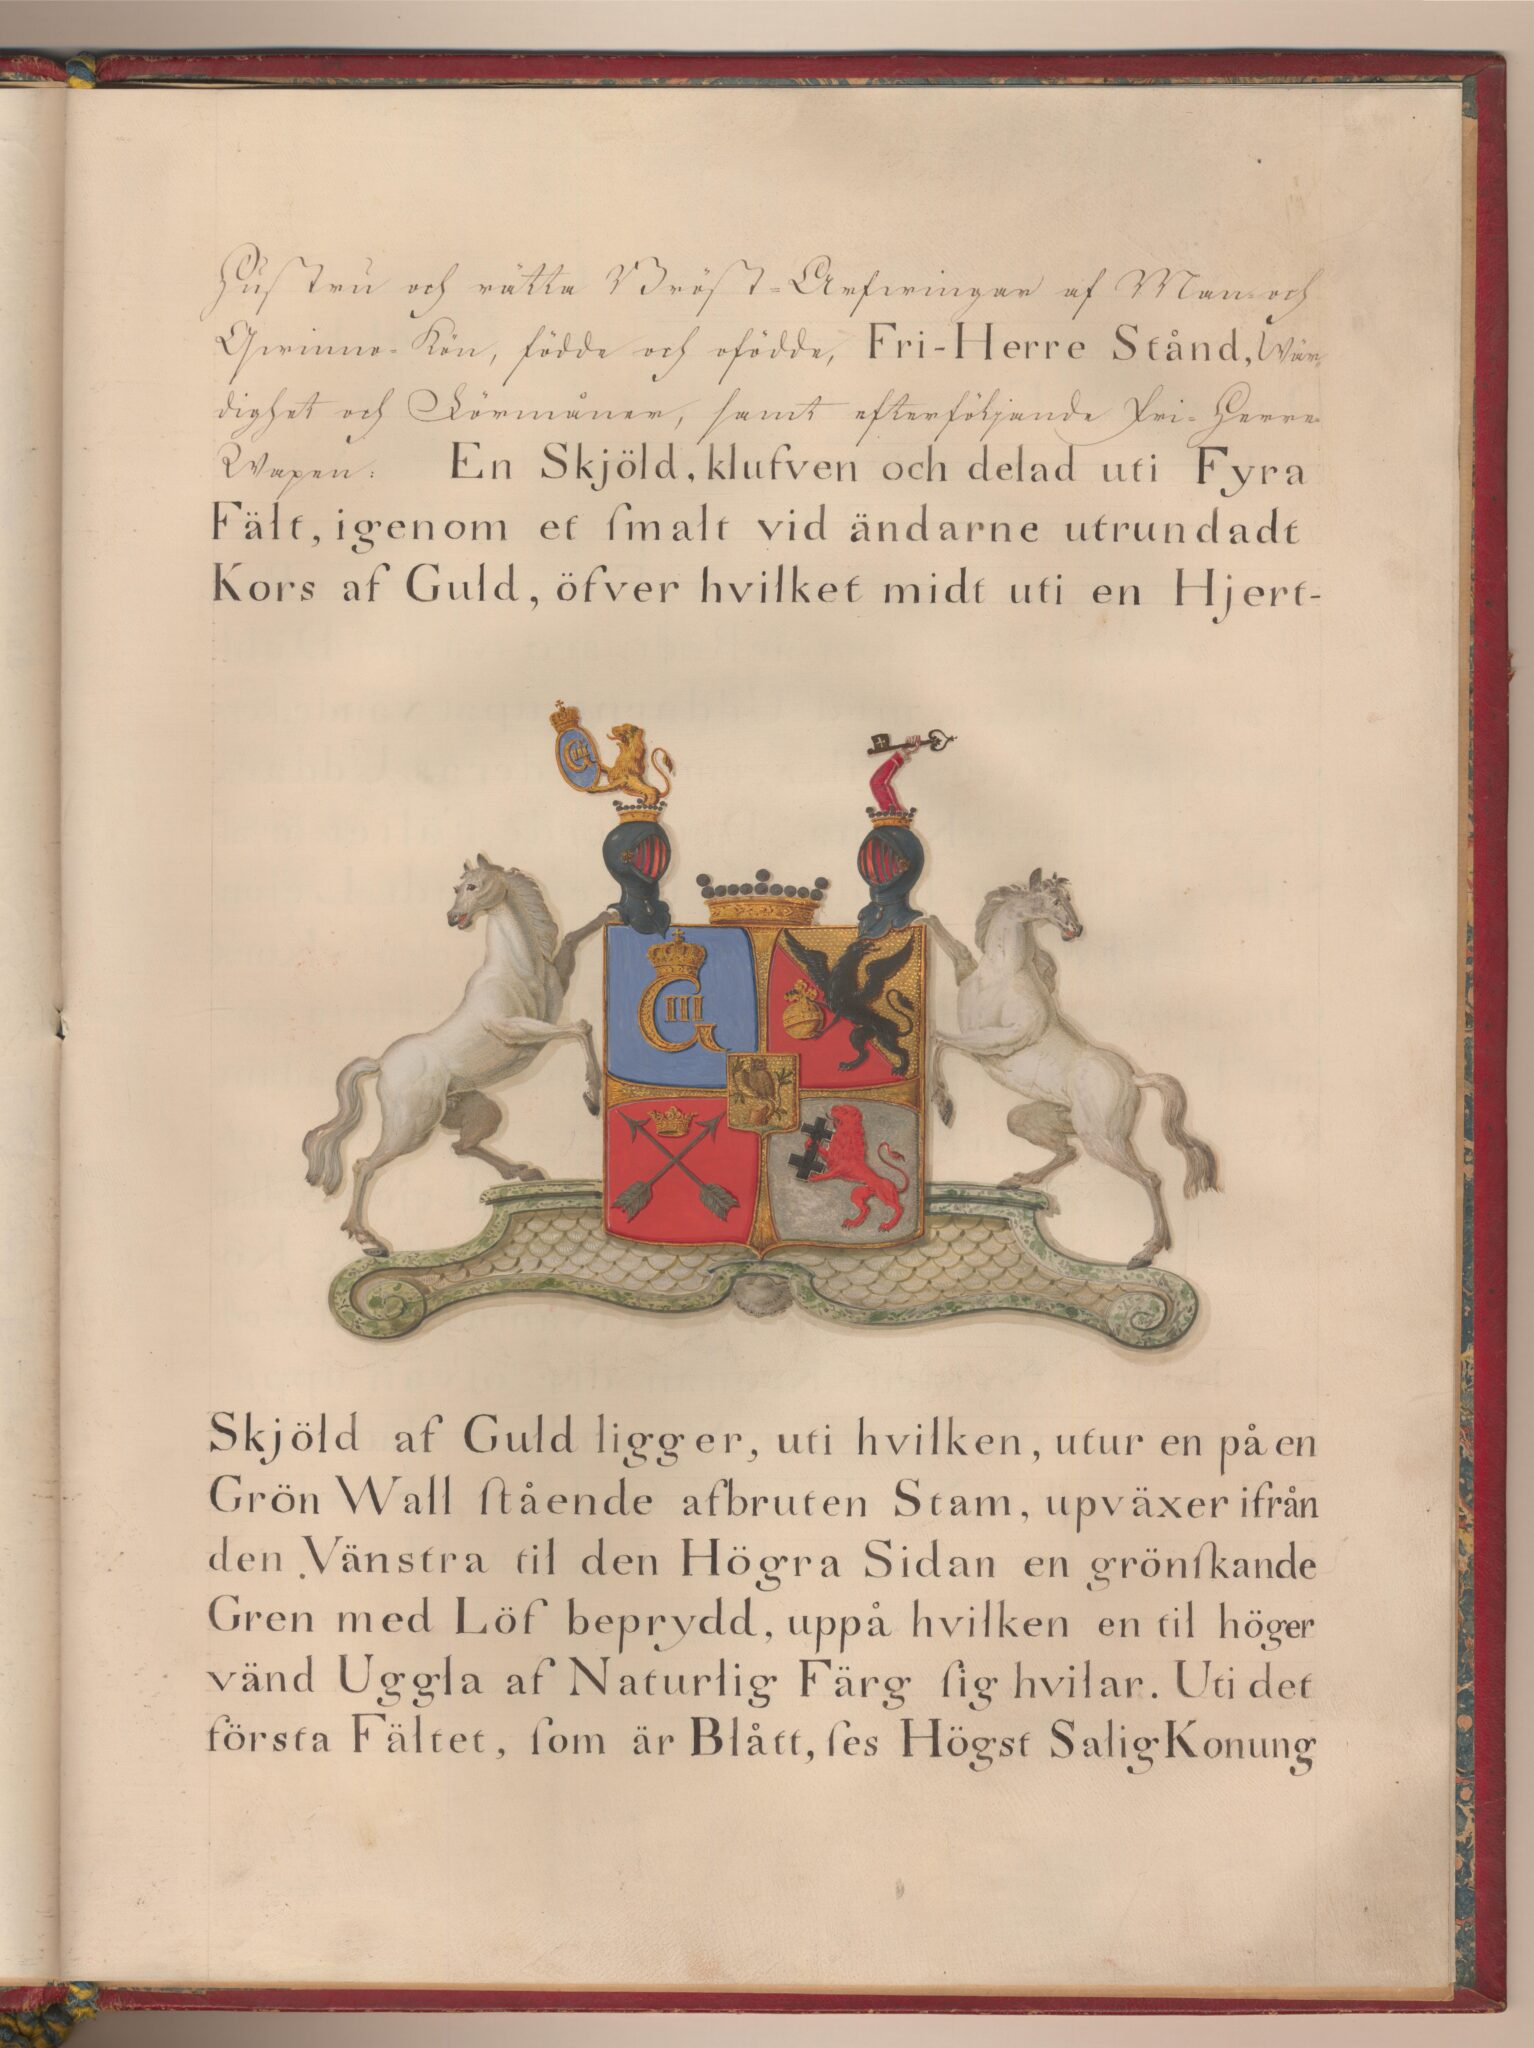 Hustru och rätta Bröst-Arfwingar af Man- och
Qwinno-Kön, födde och ofödde, Fri-Herre Stånd, Wär-
dighet och Förmåner, samt efterföljande Fri-Herre
Wapen: En Skjöld, klufven och delad uti Fyra
Fält, igenom et smalt vid ändarne utrundadt
Kors af Guld, öfver hvilket midt uti en Hjert-
G III
G III
Skjöld af Guld ligger, uti hvilken, utur en på en
Grön Wall stående afbruten Stam, upväxer ifrån
den Vänstra til den Högra Sidan en grönskande
Gren med Löf beprydd, uppå hvilken en til höger
vänd Uggla af Naturlig Färg sig hvilar. Uti det
första Fältet, som är Blått, ses Högst Salig Konung